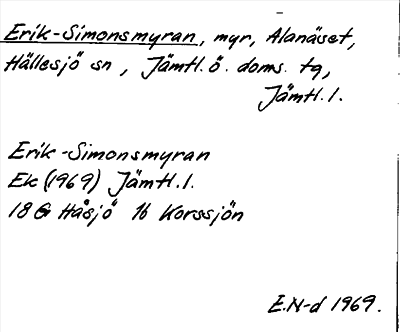 Erik-Simonsmyran, myr, Alanäset,
Hällesjö sn, Jämtl.ö. doms. tg,
Jämtl.l.
Erik-Simonsmyran
Ek (1969) Jämtl.l.
18 G Håsjö 1b Korssjön
E.N-d 1969.